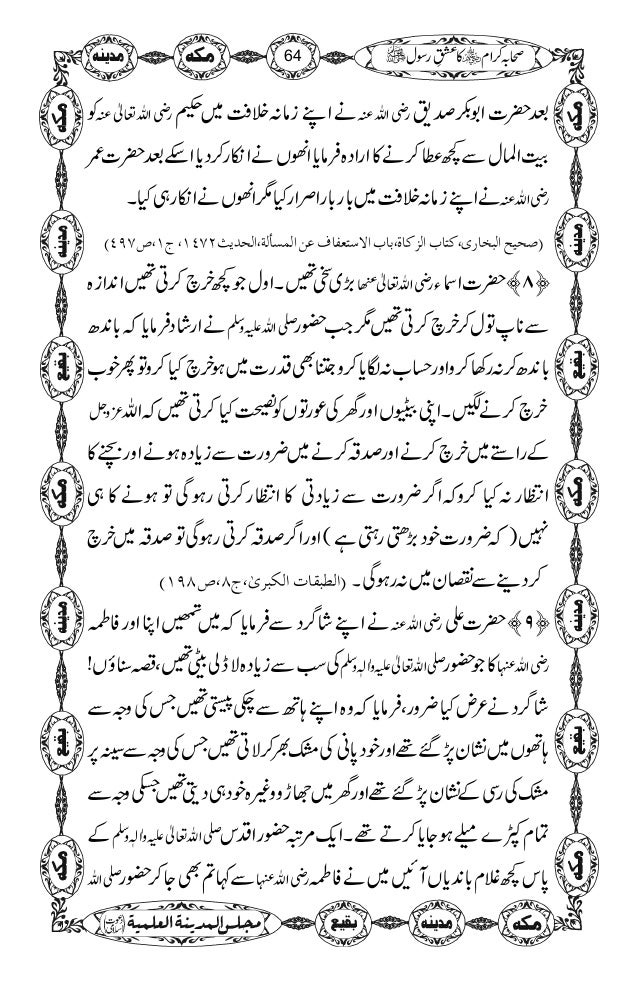 مدینہ مکہ 64 صحابہ کرام رضی اللہ عنہم کا عشق رسول ﷺ
بعد حضرت ابوبکر صدیق رضی اللہ عنہ نے اپنے زمانہ خلافت میں حکیم رضی اللہ تعالیٰ عنہ کو
بیت المال سے کچھ عطا کرنے کا ارادہ فرمایا انھوں نے انکار کردیا اسکے بعد حضرت عمر
رضی اللہ عنہ نے اپنے زمانہ خلافت میں بار بار اصرار کیا مگر انھوں نے انکار ہی کیا۔
(صحیح البخاری،کتاب الزکاة،باب الاستعفاف عن المسألة،الحدیث۱۴۷۲، ج۱،ص۴۹۷)
﴿۸﴾ حضرت اسماء رضی اللہ تعالیٰ عنھا بڑی سخی تھیں۔ اول جو کچھ خرچ کرتی تھیں اندازہ
سے ناپ تول کر خرچ کرتی تھیں مگر جب حضور صلی اللہ علیہ وسلم نے ارشاد فرمایا کہ باندھ
باندھ کر نہ رکھا کرو اور حساب نہ لگایا کرو جتنا بھی قدرت میں ہو خرچ کیا کرو تو پھر خوب
خرچ کرنے لگیں۔ اپنی بیٹیوں اور گھر کی عورتوں کو نصیحت کیا کرتی تھیں کہ اللہ عزوجل
کے راستے میں خرچ کرنے اور صدقہ کرنے میں ضرورت سے زیادہ ہونے اور بچنے کا
انتظار نہ کیا کرو کہ اگر ضرورت سے زیادتی کا انتظار کرتی رہوگی تو ہونے کا ہی
نہیں( کہ ضرورت خود بڑھتی رہتی ہے ) اور اگر صدقہ کرتی رہوگی تو صدقہ میں خرچ
کردینے سے نقصان میں نہ رہوگی۔ (الطبقات الکبریٰ،ج۸،ص۱۹۸)
﴿۹﴾ حضرت علی رضی اللہ عنہ نے اپنے شاگرد سے فرمایا کہ میں تمھیں اپنا اور فاطمہ
رضی اللہ عنہا کا جو حضور صلی اللہ تعالیٰ علیہ والہٖ وسلم کی سب سے زیادہ لاڈلی بیٹی تھیں، قصہ سناؤں!
شاگرد نے عرض کیا ضرور، فرمایا کہ وہ اپنے ہاتھ سے چکی پیستی تھیں جس کی وجہ سے
ہاتھوں میں نشان پڑ گئے تھے اور خود پانی کی مشک بھر کر لاتی تھیں جس کی وجہ سے سینہ پر
مشک کی رسی کے نشان پڑ گئے تھے اور گھر میں جھاڑو وغیرہ خود ہی دیتی تھیں جسکی وجہ سے
تمام کپڑے میلے ہو جایا کرتے تھے۔ ایک مرتبہ حضور اقدس صلی اللہ تعالیٰ علیہ والہٖ وسلم کے
پاس کچھ غلام باندیاں آئیں میں نے فاطمہ رضی اللہ عنہا سے کہا تم بھی جا کر حضور صلی اللہ
مکہ
مدینہ
بقیع
مکہ
مدینہ
بقیع
مکہ
مکہ
مدینہ
بقیع
مکہ
مدینہ
بقیع
مکہ
مکہ مدینہ بقیع مجلس المدینة العلمیة